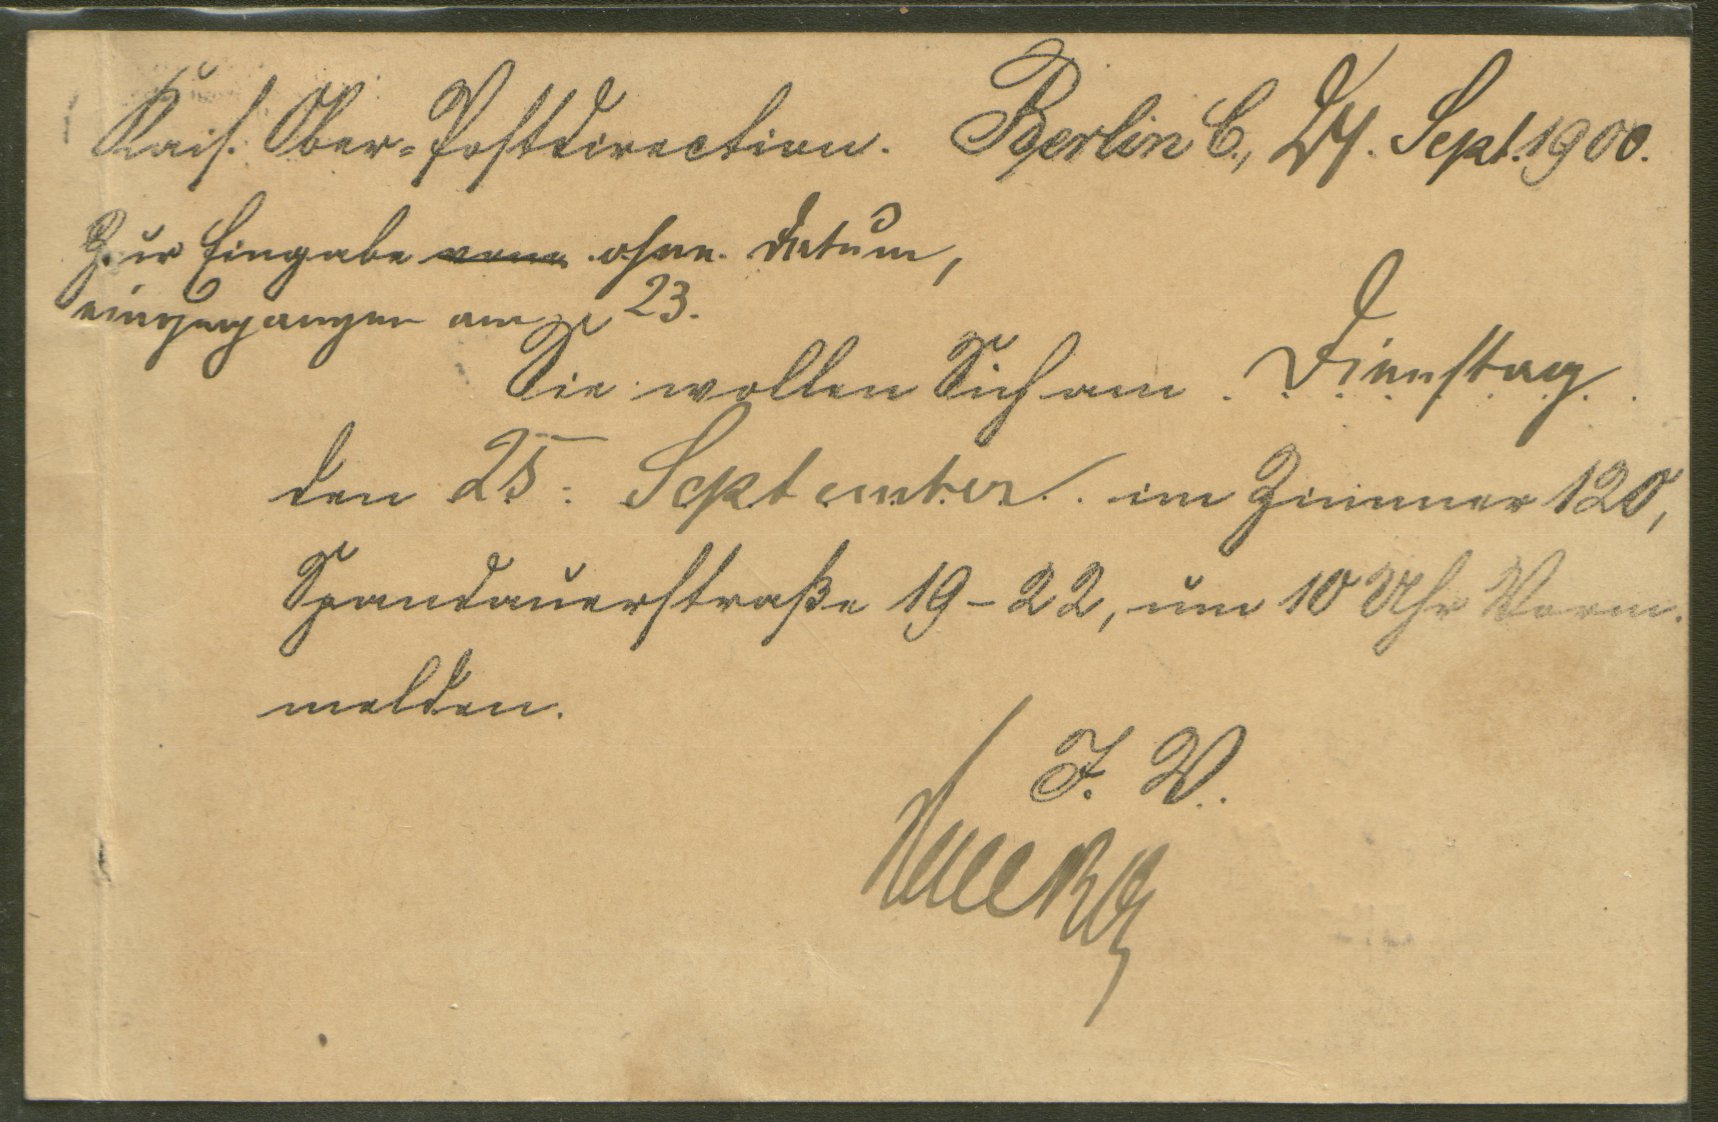 Kais. Ober-Postdirection. Berlin C., 24. Sept. 1900.
Zur Eingabe vom ohne Datum,
eingegangen am 23.
Sie wollen Sich am Dienstag
den 25. September im Zimmer 120,
Spandauerstraße 19-22, um 10 Uhr Vorm.
melden.
I. V.